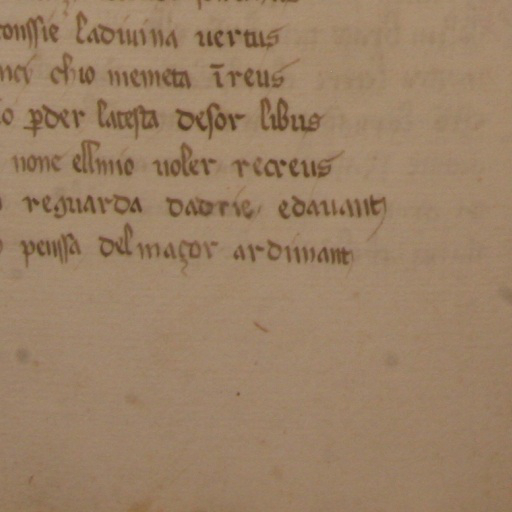 conssie ladiuina uertus
chio memeta īreus
ꝑder latesta desor libus
none ellmio uoler recreus
reguarda dadrie edauant
penssa del maçor ardimant